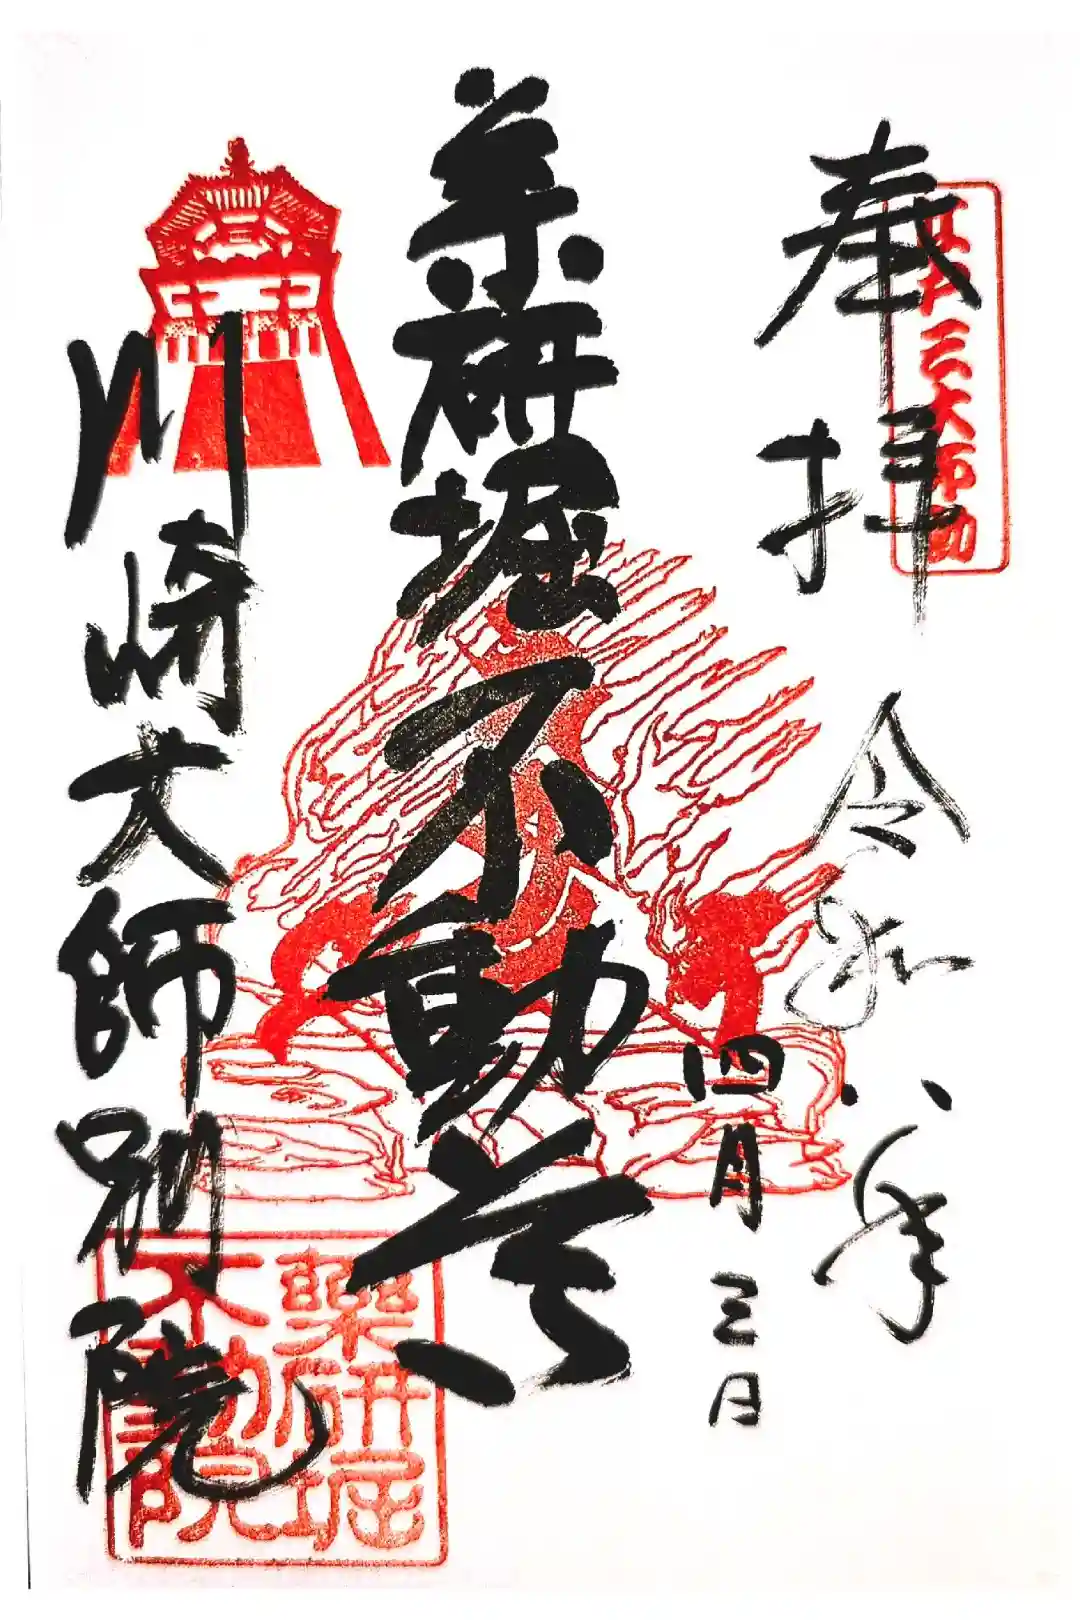 奉拝
令和八年
四月三日
江戸三大不動
薬研堀不動尊
川崎大師別院
薬研堀
不動院